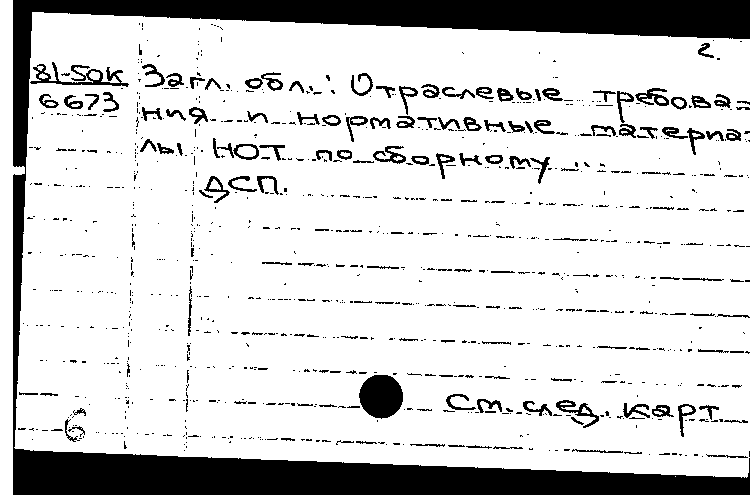 2.
81-50К Загл. обл.: Отраслевые требова-
6673 ния и нормативные материа-
лы НОТ по сборному ...
ДСП.
См. след. карт
6